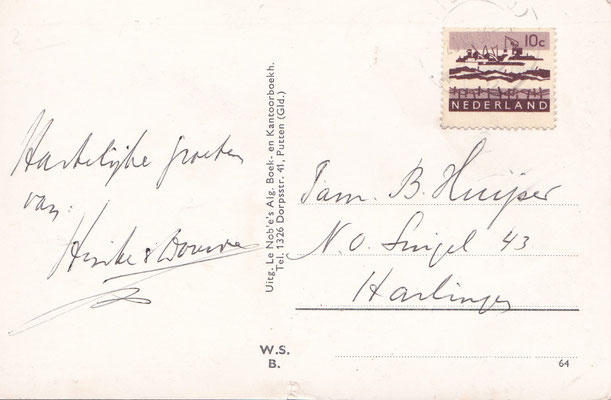 Hartelijke groeten
van:
Hinke & Douwe
Uitg. Le Nob'e's Alg. Boek- en Kantoorboekh.
Tel. 1326 Dorpsstr. 41, Putten (Gld.)
10c
NEDERLAND
Fam. B. Huijser
N.O. Singel 43
Harlingen
W.S.
B.
64